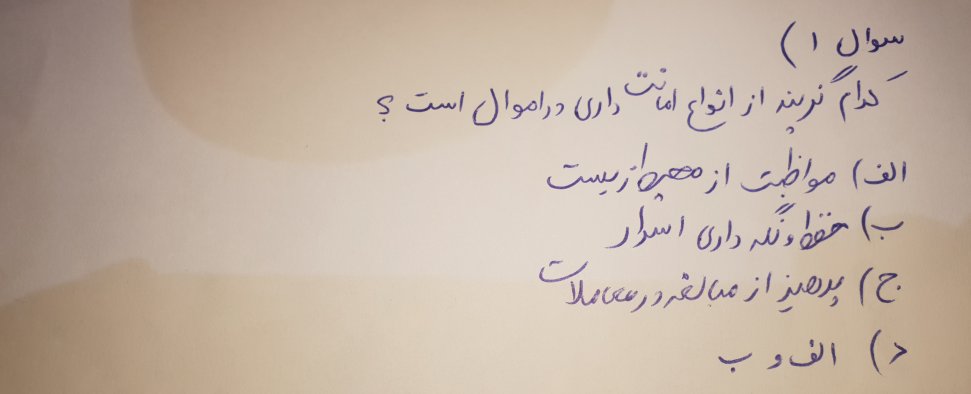 سوال ۱)
کدام گزینه از انواع امانت داری در اموال است ؟
الف) مواظبت از محیط زیست
ب) حفظ و نگه داری اسرار
ج) پرهیز از مبالغه در معاملات
د) الف و ب